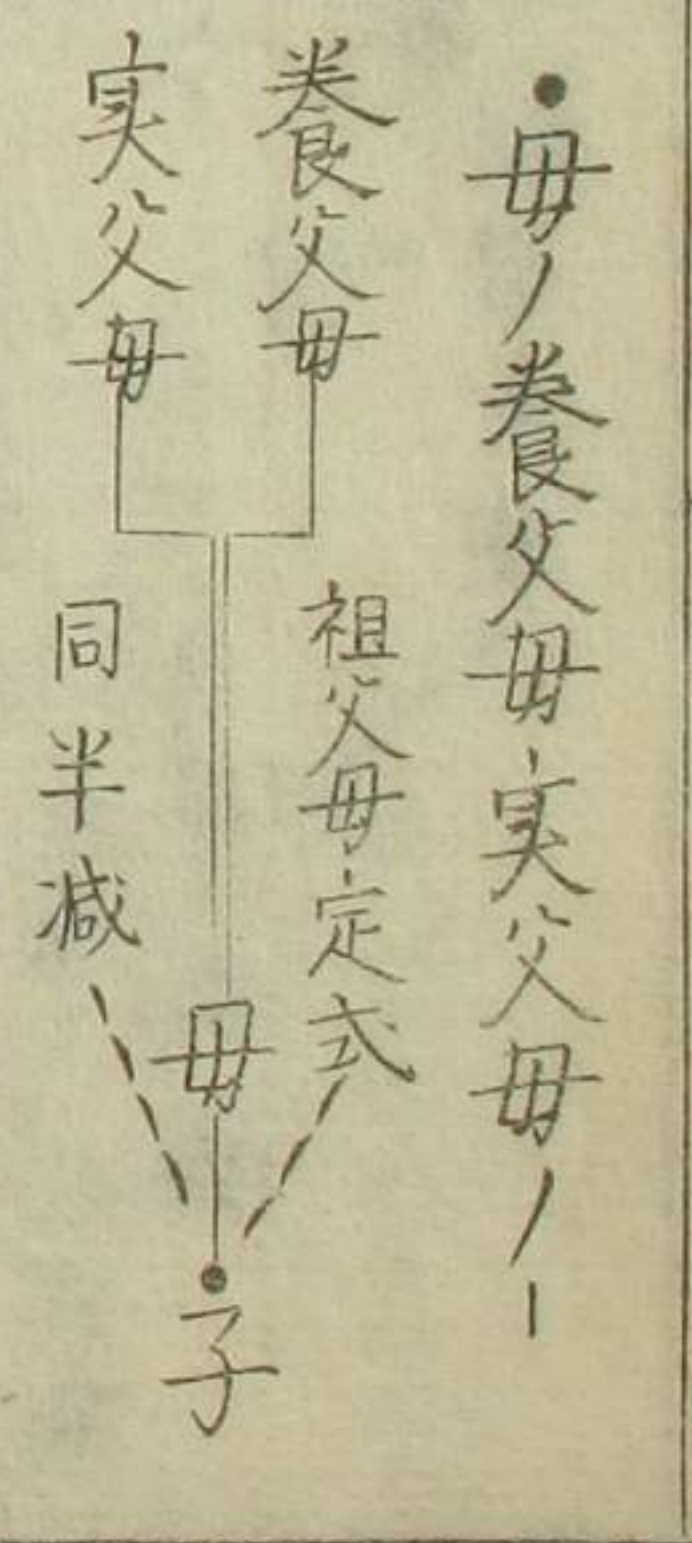 ●母ノ養父母実父母ノー
養父母
実父母
祖父母定式
同半減
母
子